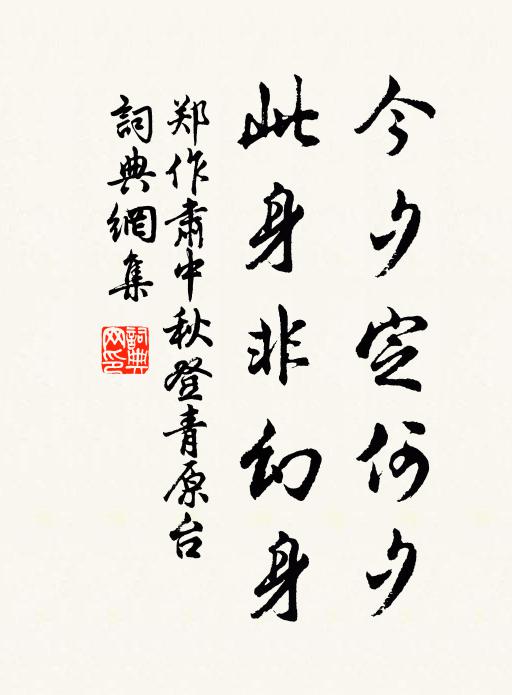 今夕定何夕
此身非幻身
郑作肃中秋登青原台
詞典網集
詞典網印